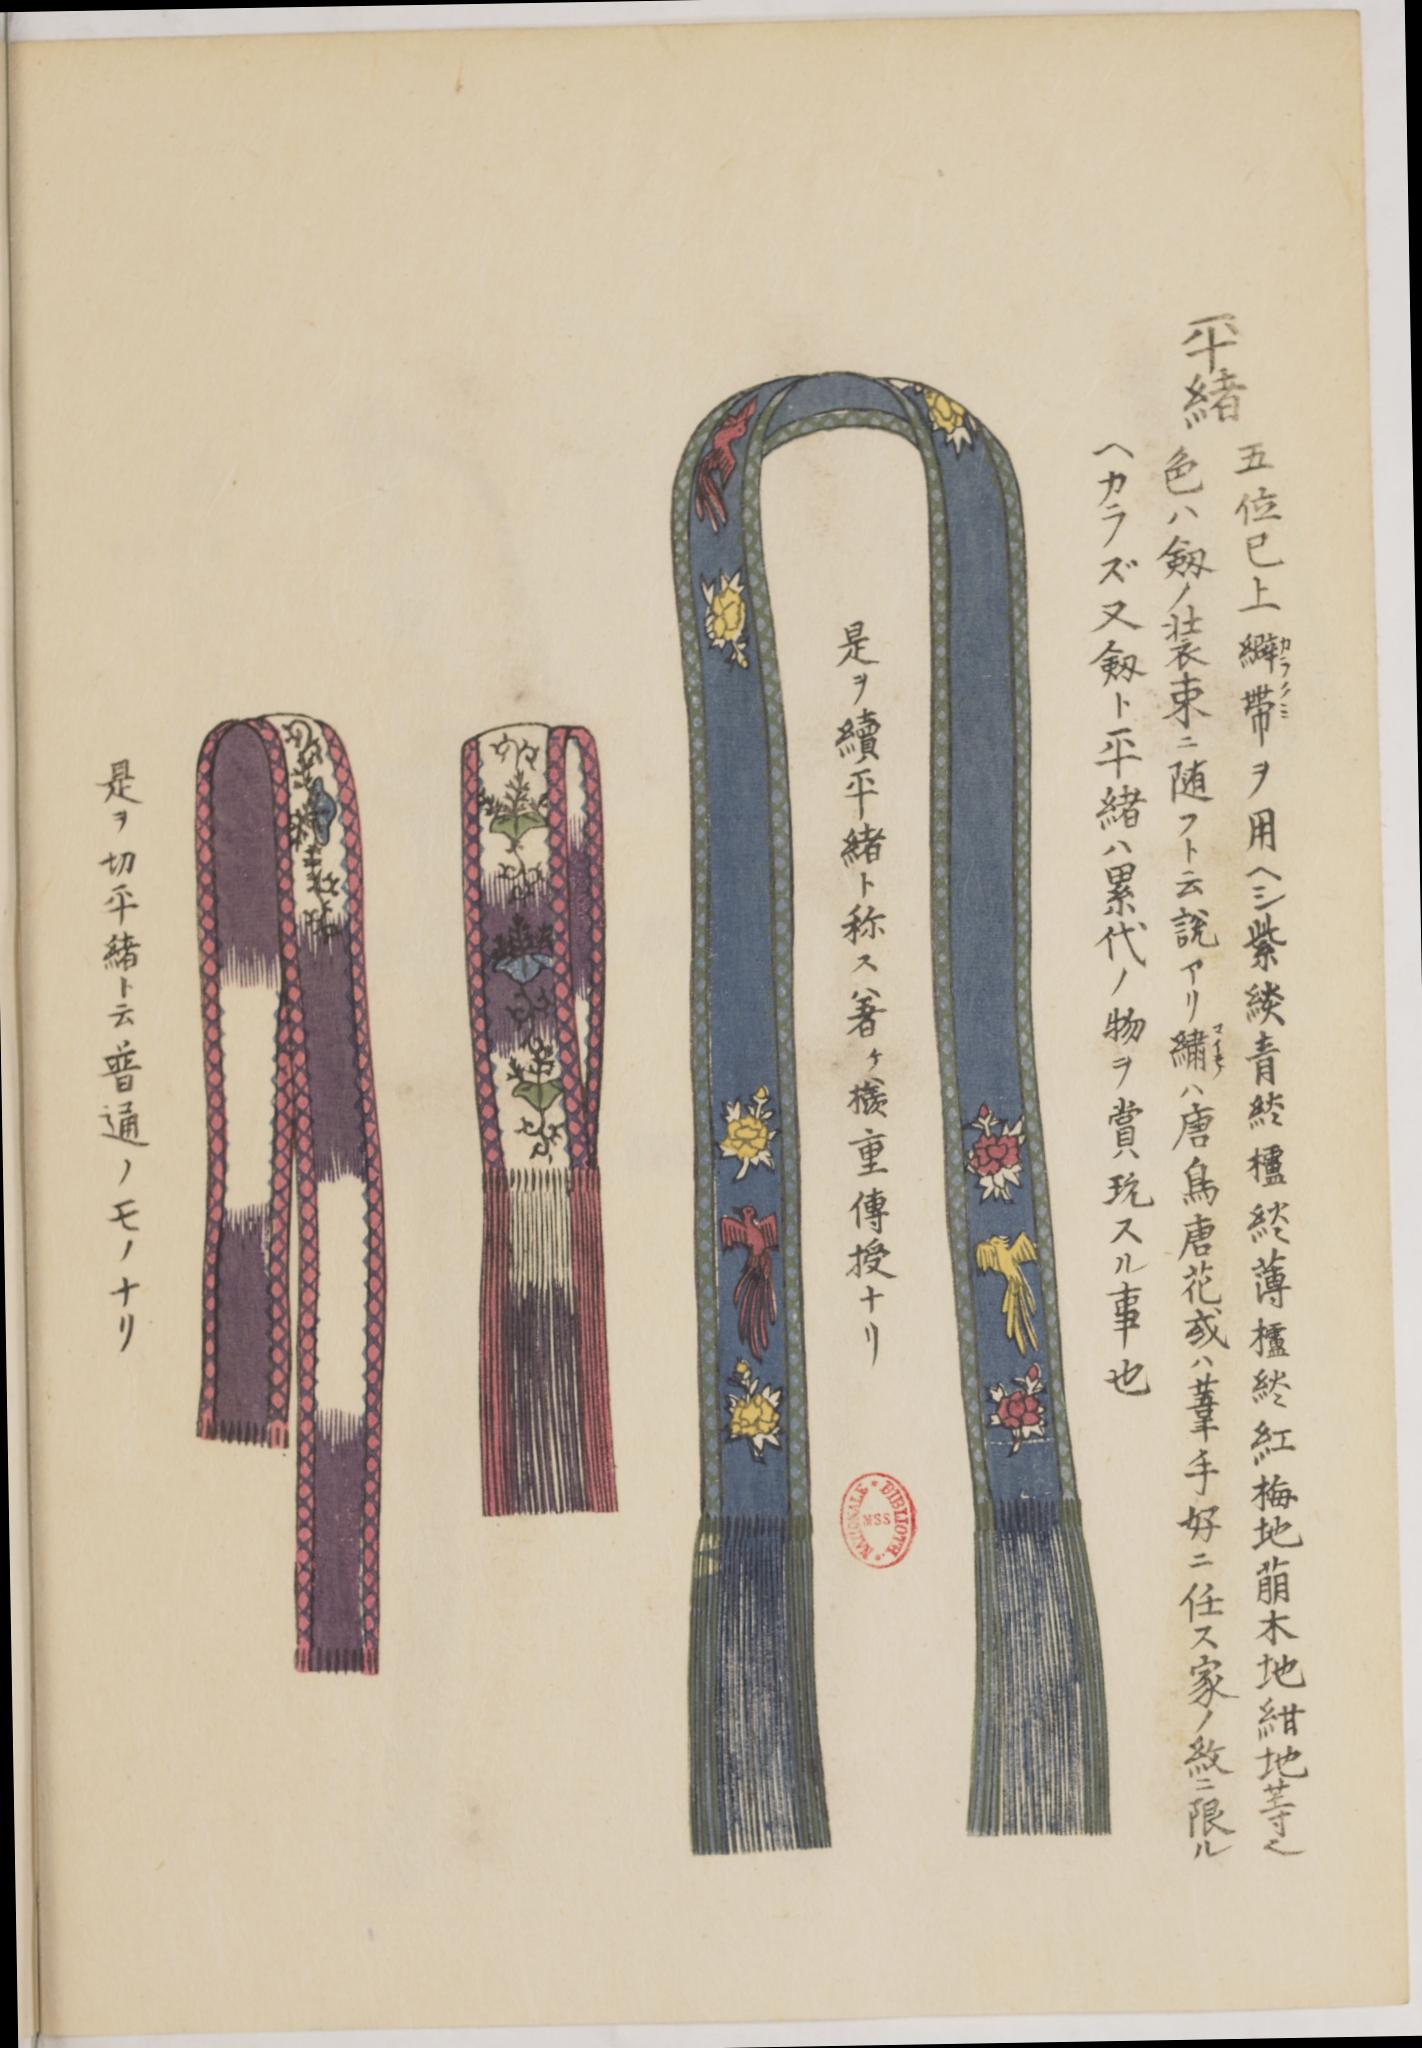 平緒
五位已上綼帶ヲ用ヘシ紫緂青緂櫨緂薄櫨緂紅梅地萠木地紺地等之
カラクミ
色ハ劔ノ装束ニ随フト云説アリ繡ハ唐鳥唐花或ハ葦手好ニ任ス家ノ紋ニ限ル
ヘカラズ又劔ト平緒ハ累代ノ物ヲ賞玩スル事也
是ヲ續平緒ト称ス著ケ様重傳授ナリ
是ヲ切平緒ト云普通ノモノナリ
BIBLIOTH. NATIONALE
MSS